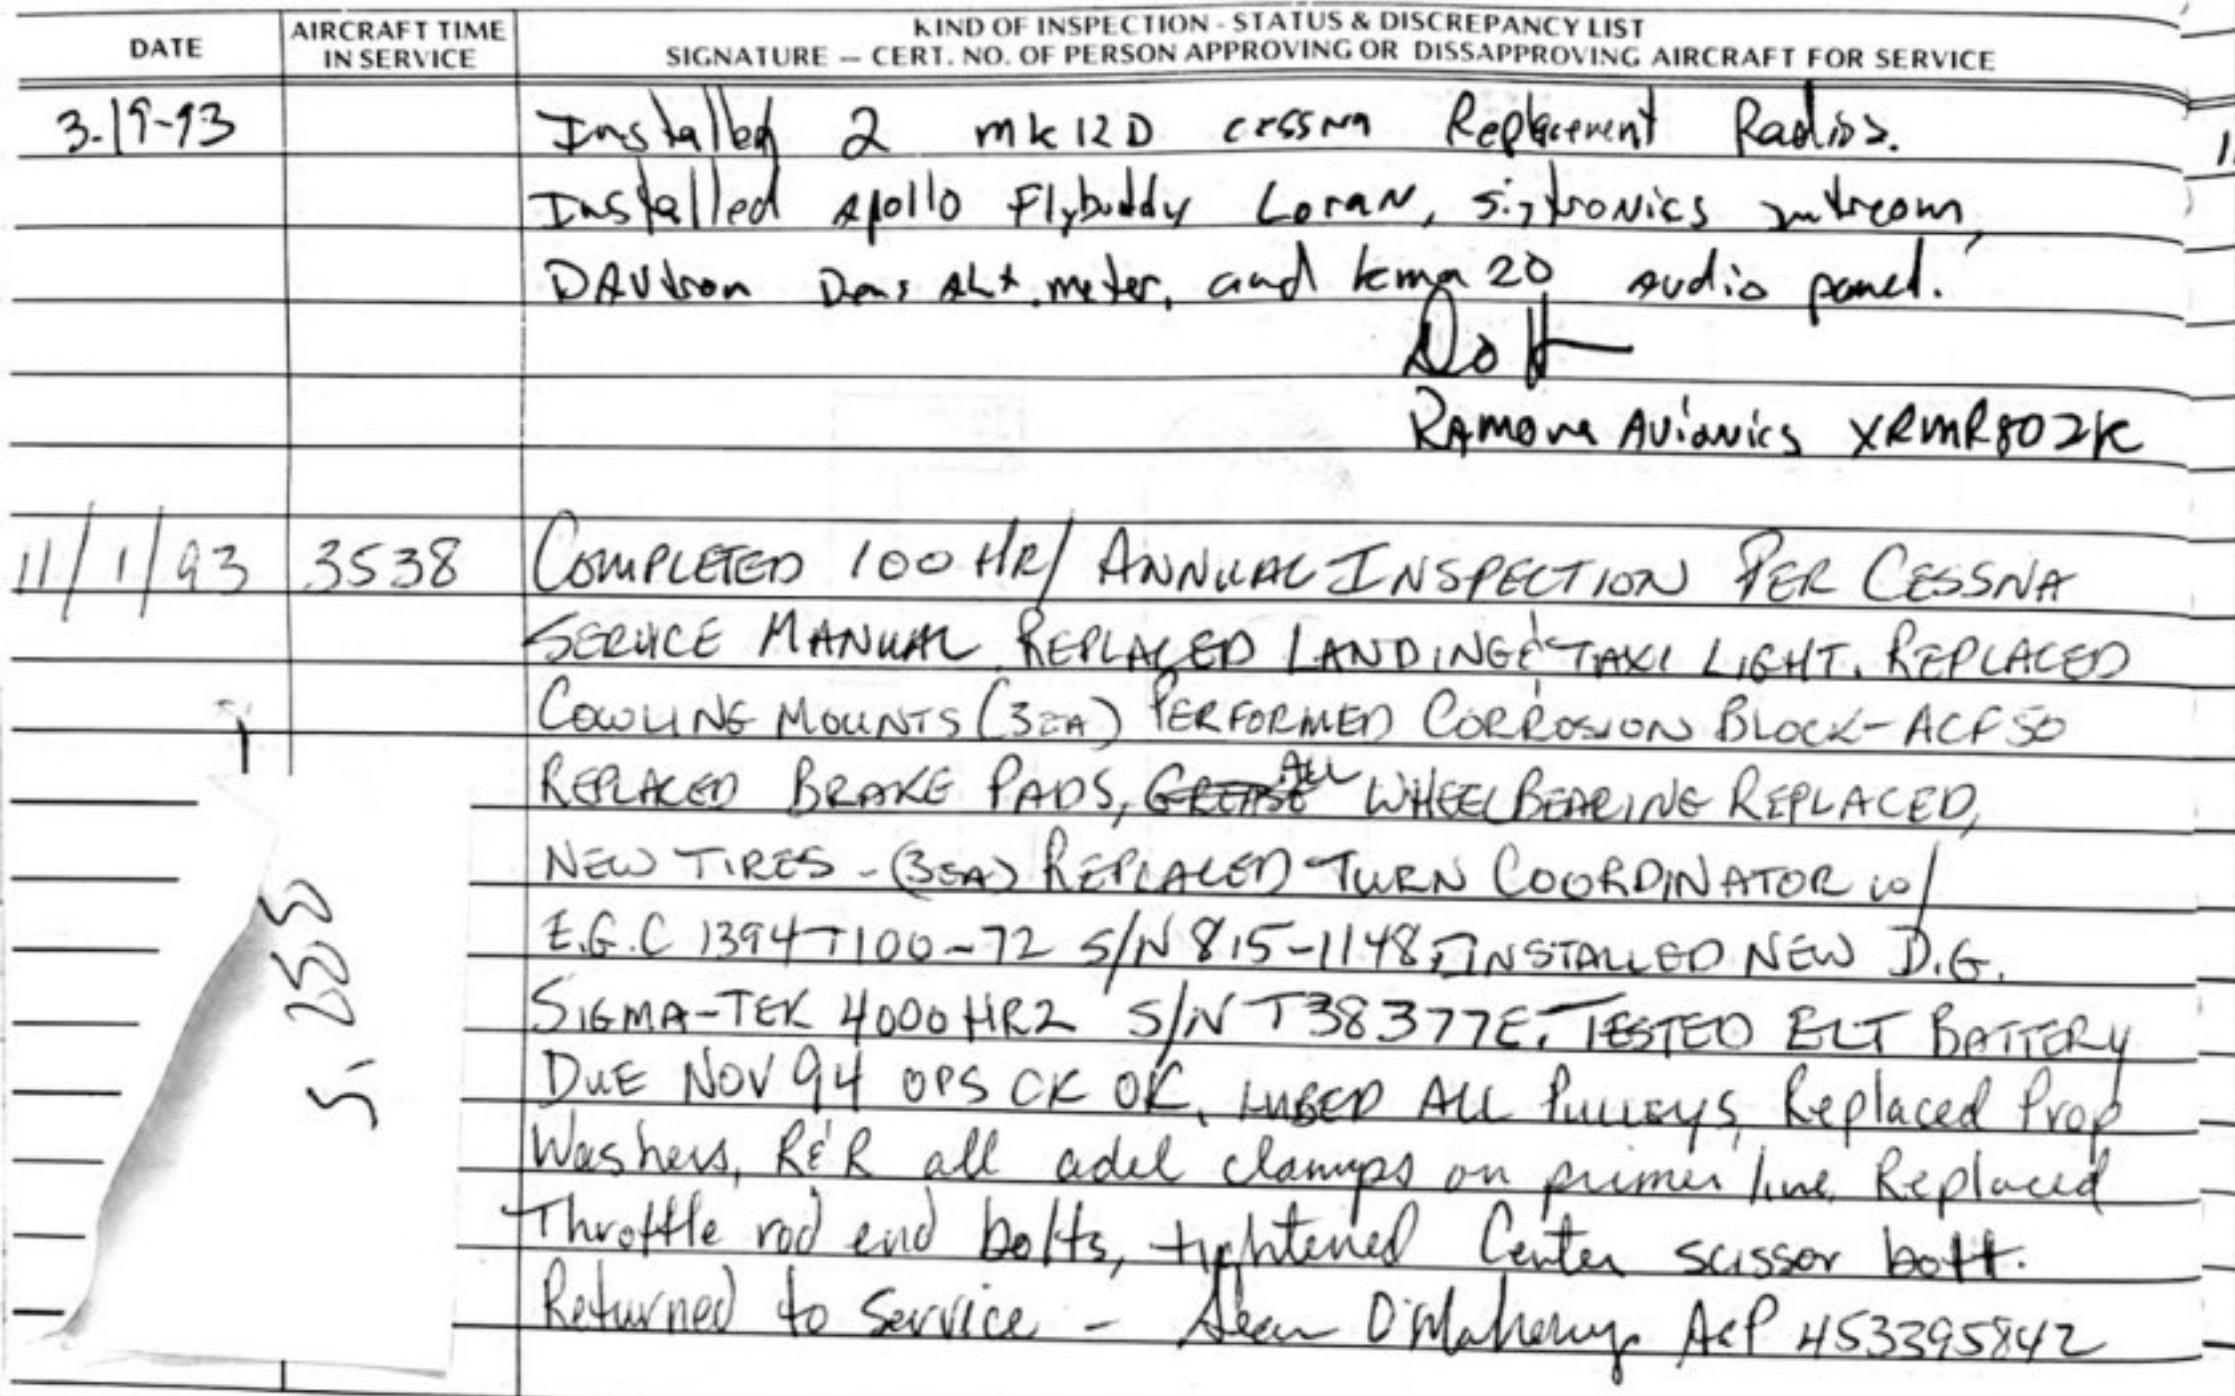 DATE
AIRCRAFT TIME
IN SERVICE
KIND OF INSPECTION - STATUS & DISCREPANCY LIST
SIGNATURE — CERT. NO. OF PERSON APPROVING OR DISSAPPROVING AIRCRAFT FOR SERVICE
3-19-93 Installed 2 mk12D cessna Replacement Radios.
Installed Apollo Flybuddy Loran, Sigtronics Intercom,
DAVtron Dens Alt. meter, and kma 20 Audio panel.
Ramona Avionics XRMR802K
11/1/93 3538 COMPLETED 100 HR/ ANNUAL INSPECTION PER CESSNA
SERVICE MANUAL. REPLACED LANDING & TAXI LIGHT. REPLACED
COWLING MOUNTS (3EA) PERFORMED CORROSION BLOCK-ACF50
REPLACED BRAKE PADS, GREASE ALL WHEEL BEARING REPLACED,
NEW TIRES - (3EA) REPLACED TURN COORDINATOR w/
E.G.C 1394T100-72 S/N 815-1148, INSTALLED NEW D.G.
SIGMA-TEK 4000HR2 S/N T38377E. TESTED ELT BATTERY
DUE NOV 94 OPS CK OK, LUBED ALL PULLEYS, Replaced Prop
Washers, R&R all adel clamps on primer line, Replaced
Throttle rod end bolts, tightened Center scissor bolt.
Returned to Service - Sean O'Mahony A&P 453395842